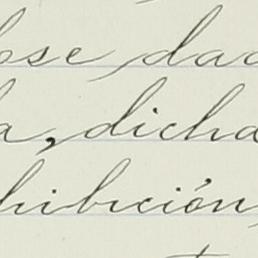 ose dad
a, dicha
hibición,